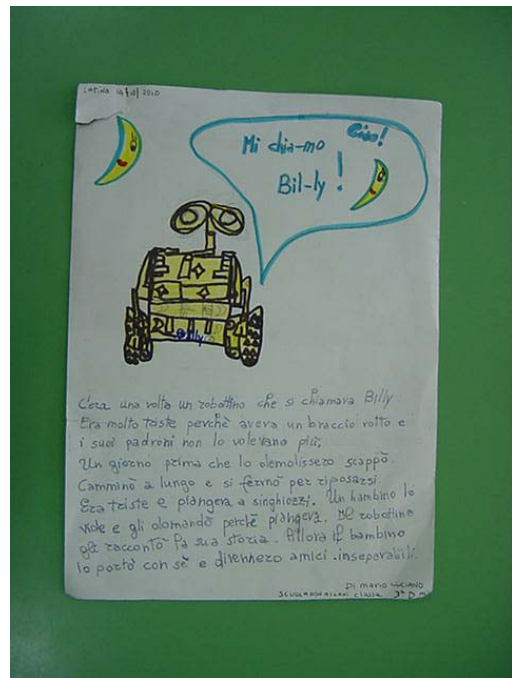 Latina 14/10/2010
Ciao!
Mi chia-mo
Bil-ly!
Billy
C'era una volta un robottino che si chiamava Billy
Era molto triste perchè aveva un braccio rotto e
i suoi padroni non lo volevano più.
Un giorno prima che lo demolissero scappò
Camminò a lungo e si fermò per riposarsi
Era triste e piangeva a singhiozzi. Un bambino lo
vide e gli domandò perchè piangeva. Il robottino
gli raccontò la sua storia. Allora il bambino
lo portò con sè e divennero amici inseparabili.
Di Mario Luciano
Scuola Don Milani classe 3ª D